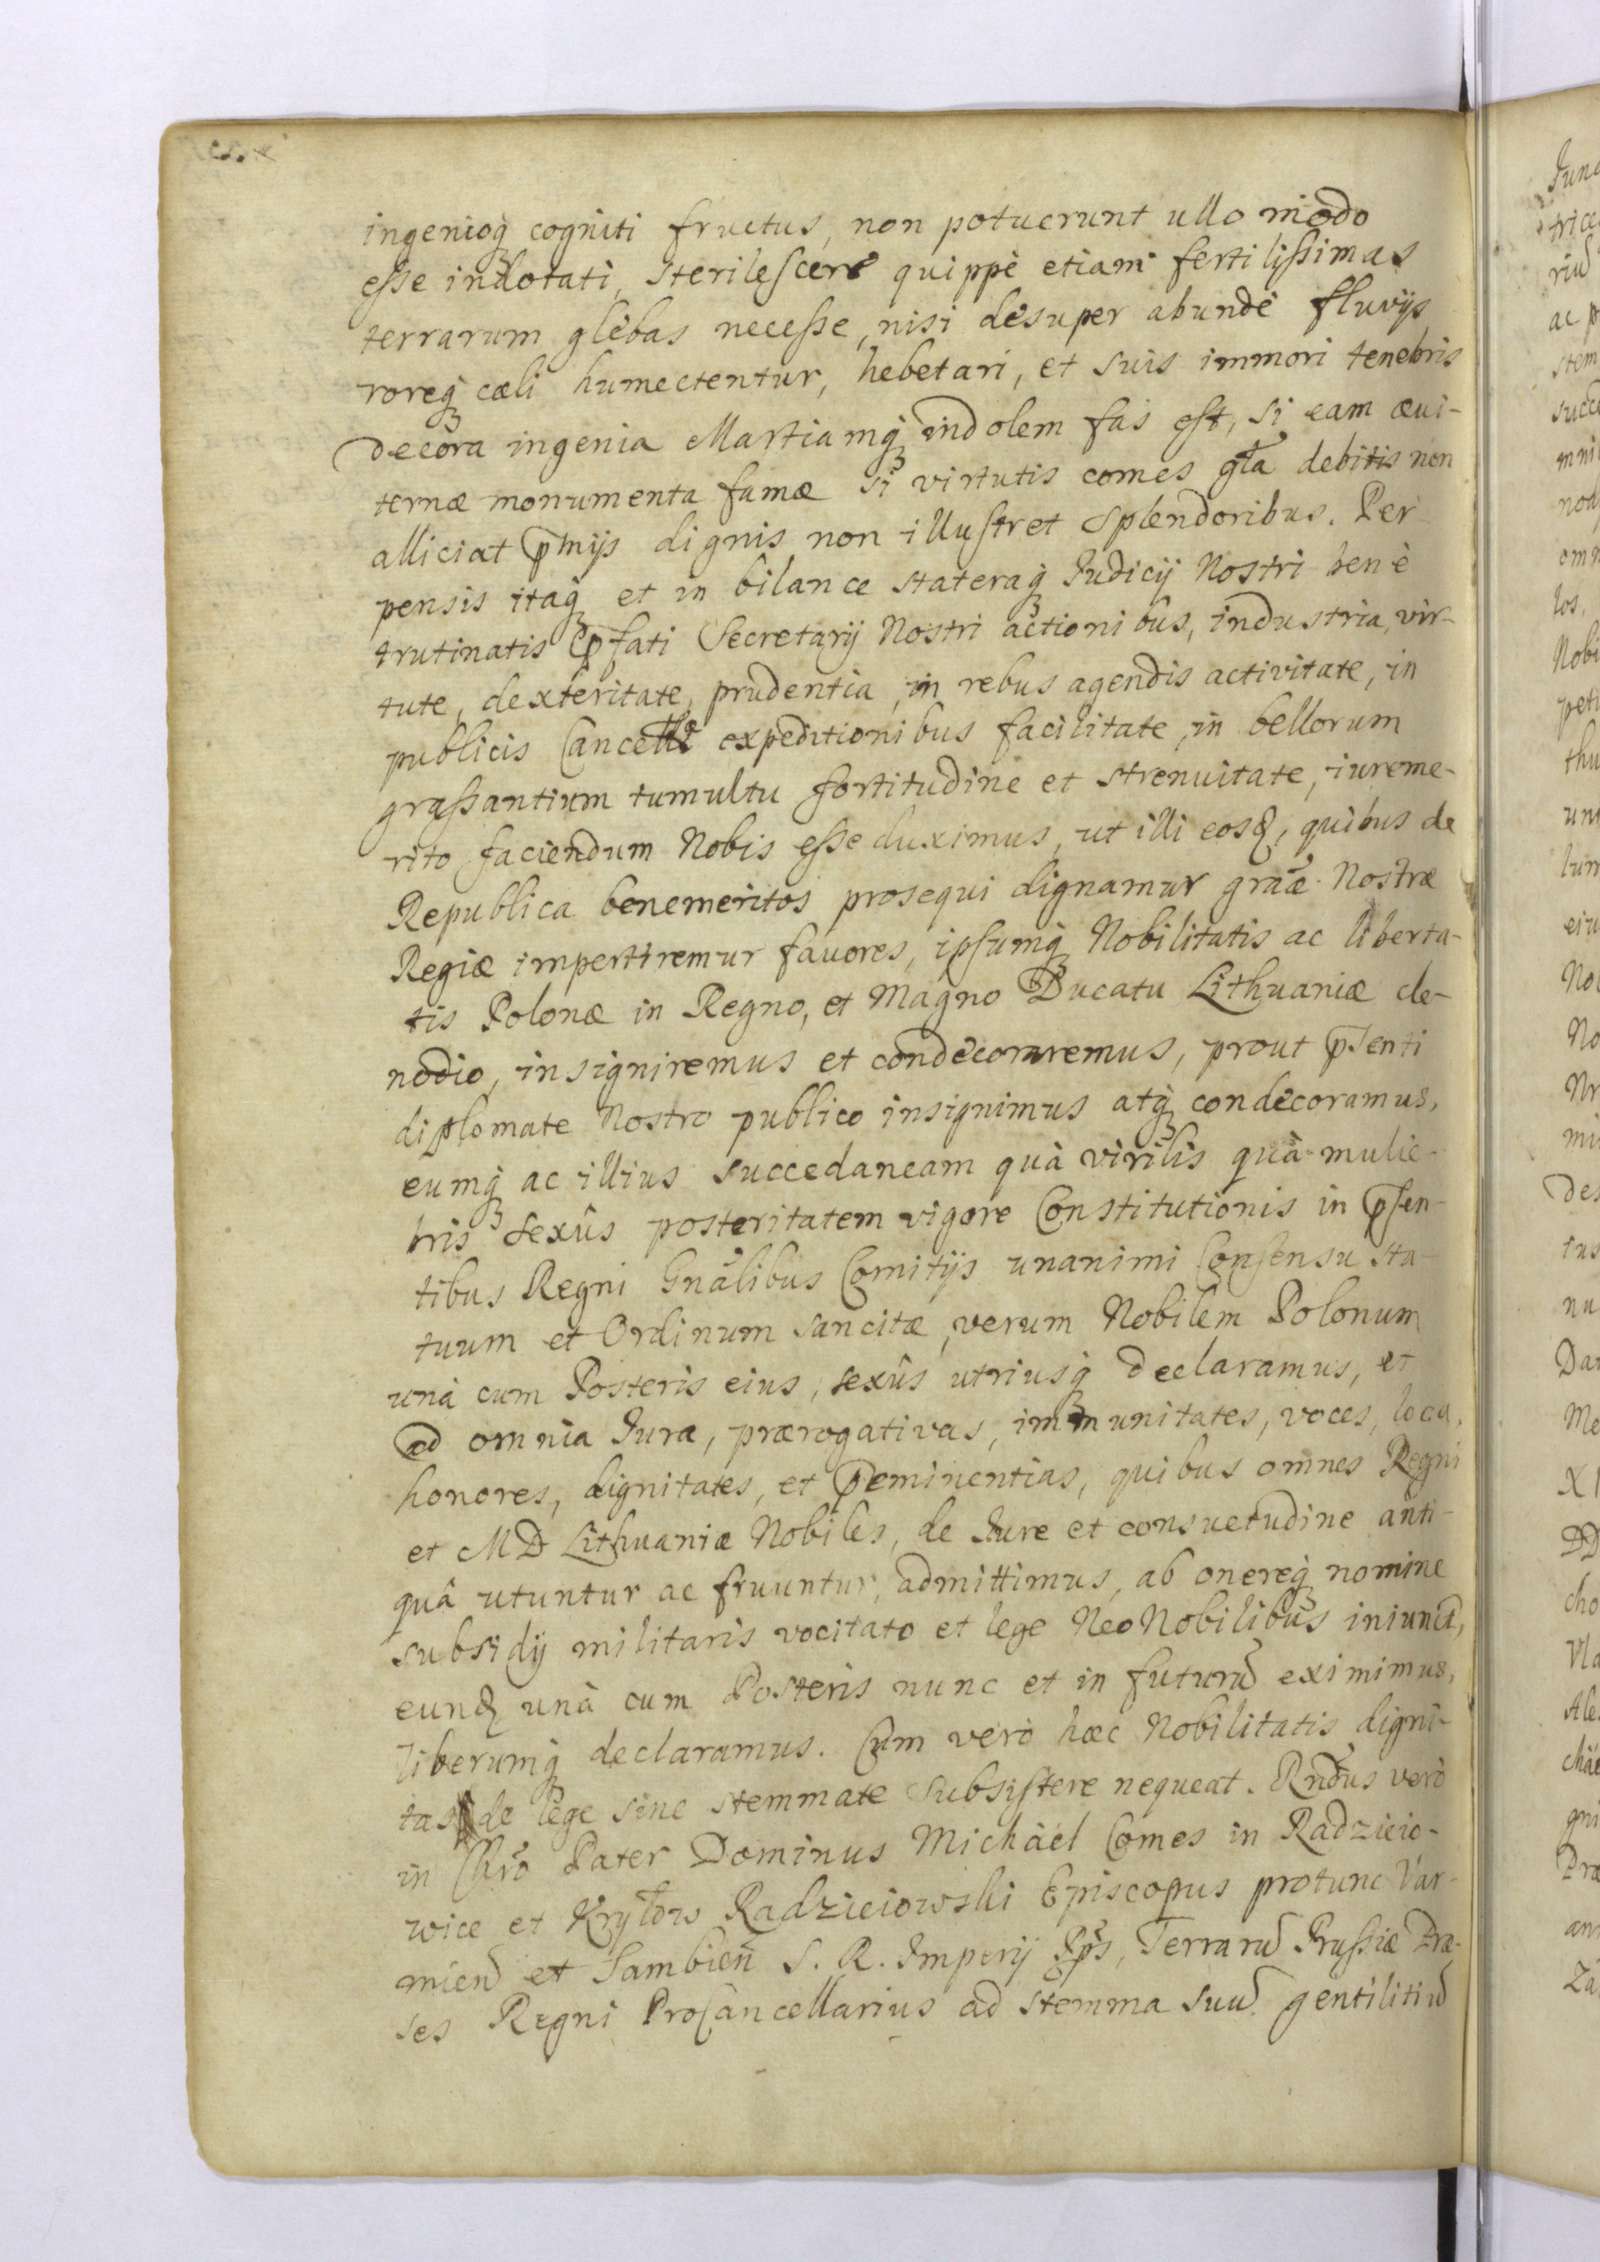 ingenioq̃ cogniti fructus, non potuerunt ullo modo
esse indotati, sterilescere quippè etiam fertilissimas
terrarum glebas necesse, nisi desuper abundè fluvijs
roreq̃ cæli humectentur, hebetari, et suis immori tenebris
decora ingenia Martiamq̃ indolem fas est, si eam æui-
ternæ monumenta famæ si virtutis comes gl̃a debitis non
alliciat p̃mijs dignis non illustret splendoribus. Per
pensis itaq̃ et in bilance stateraq̃ Judicij Nostri benè
trutinatis p̃fati Secretarij Nostri actionibus, industria, vir-
tute, dexteritate, prudentia, in rebus agendis activitate, in
publicis Cancell̃æ expeditionibus facilitate, in bellorum
grassantium tumultu fortitudine et strenuitate, iureme-
rito faciendum Nobis esse duximus, ut illi eosq, quibus de
Republica benemeritos prosequi dignamur gr̃æ Nostræ
Regiæ impertiremur fauores, ipsumq̃ Nobilitatis ac liberta-
tis Polonæ in Regno, et Magno Ducatu Lithuaniæ cle-
nodio, insigniremus et condecoraremus, prout p̃senti
diplomate Nostro publico insignimus atq̃ condecoramus,
eumq̃ ac illius succedaneam quà virilis quà mulie-
bris sexûs posteritatem vigore Constitutionis in p̃sen-
tibus Regni Gñalibus Comitijs unanimi Consensu sta-
tuum et Ordinum sancitæ, verum Nobilem Polonum
unà cum Posteris eius, sexûs utriusq̃ declaramus, et
ad omnia Jura, prærogativas, immunitates, voces, loca,
honores, dignitates, et p̃eminentias, quibus omnes Regni
et MD Lithuaniæ Nobiles, de Jure et consuetudine anti-
quâ utuntur ac fruuntur, admittimus, ab onereq̃ nomine
subsidij militaris vocitato et lege NeoNobilibus iniunct,
eund unà cum Posteris nunc et in futurũ eximimus,
liberumq̃ declaramus. Cum verò hæc Nobilitatis digni-
tas de lege sine stemmate subsistere nequeat. Rñdus verò
in Chr̃o Pater Dominus Michäel Comes in Radzieio-
wice et Krył̃ow Radzieiowski Episcopus protunc Var-
mieñ et Sambieñ S. R. Imperij Pp̃s, Terrarũ Prussiæ Præ-
ses Regni ProCancellarius ad stemma suũ gentilitiũ